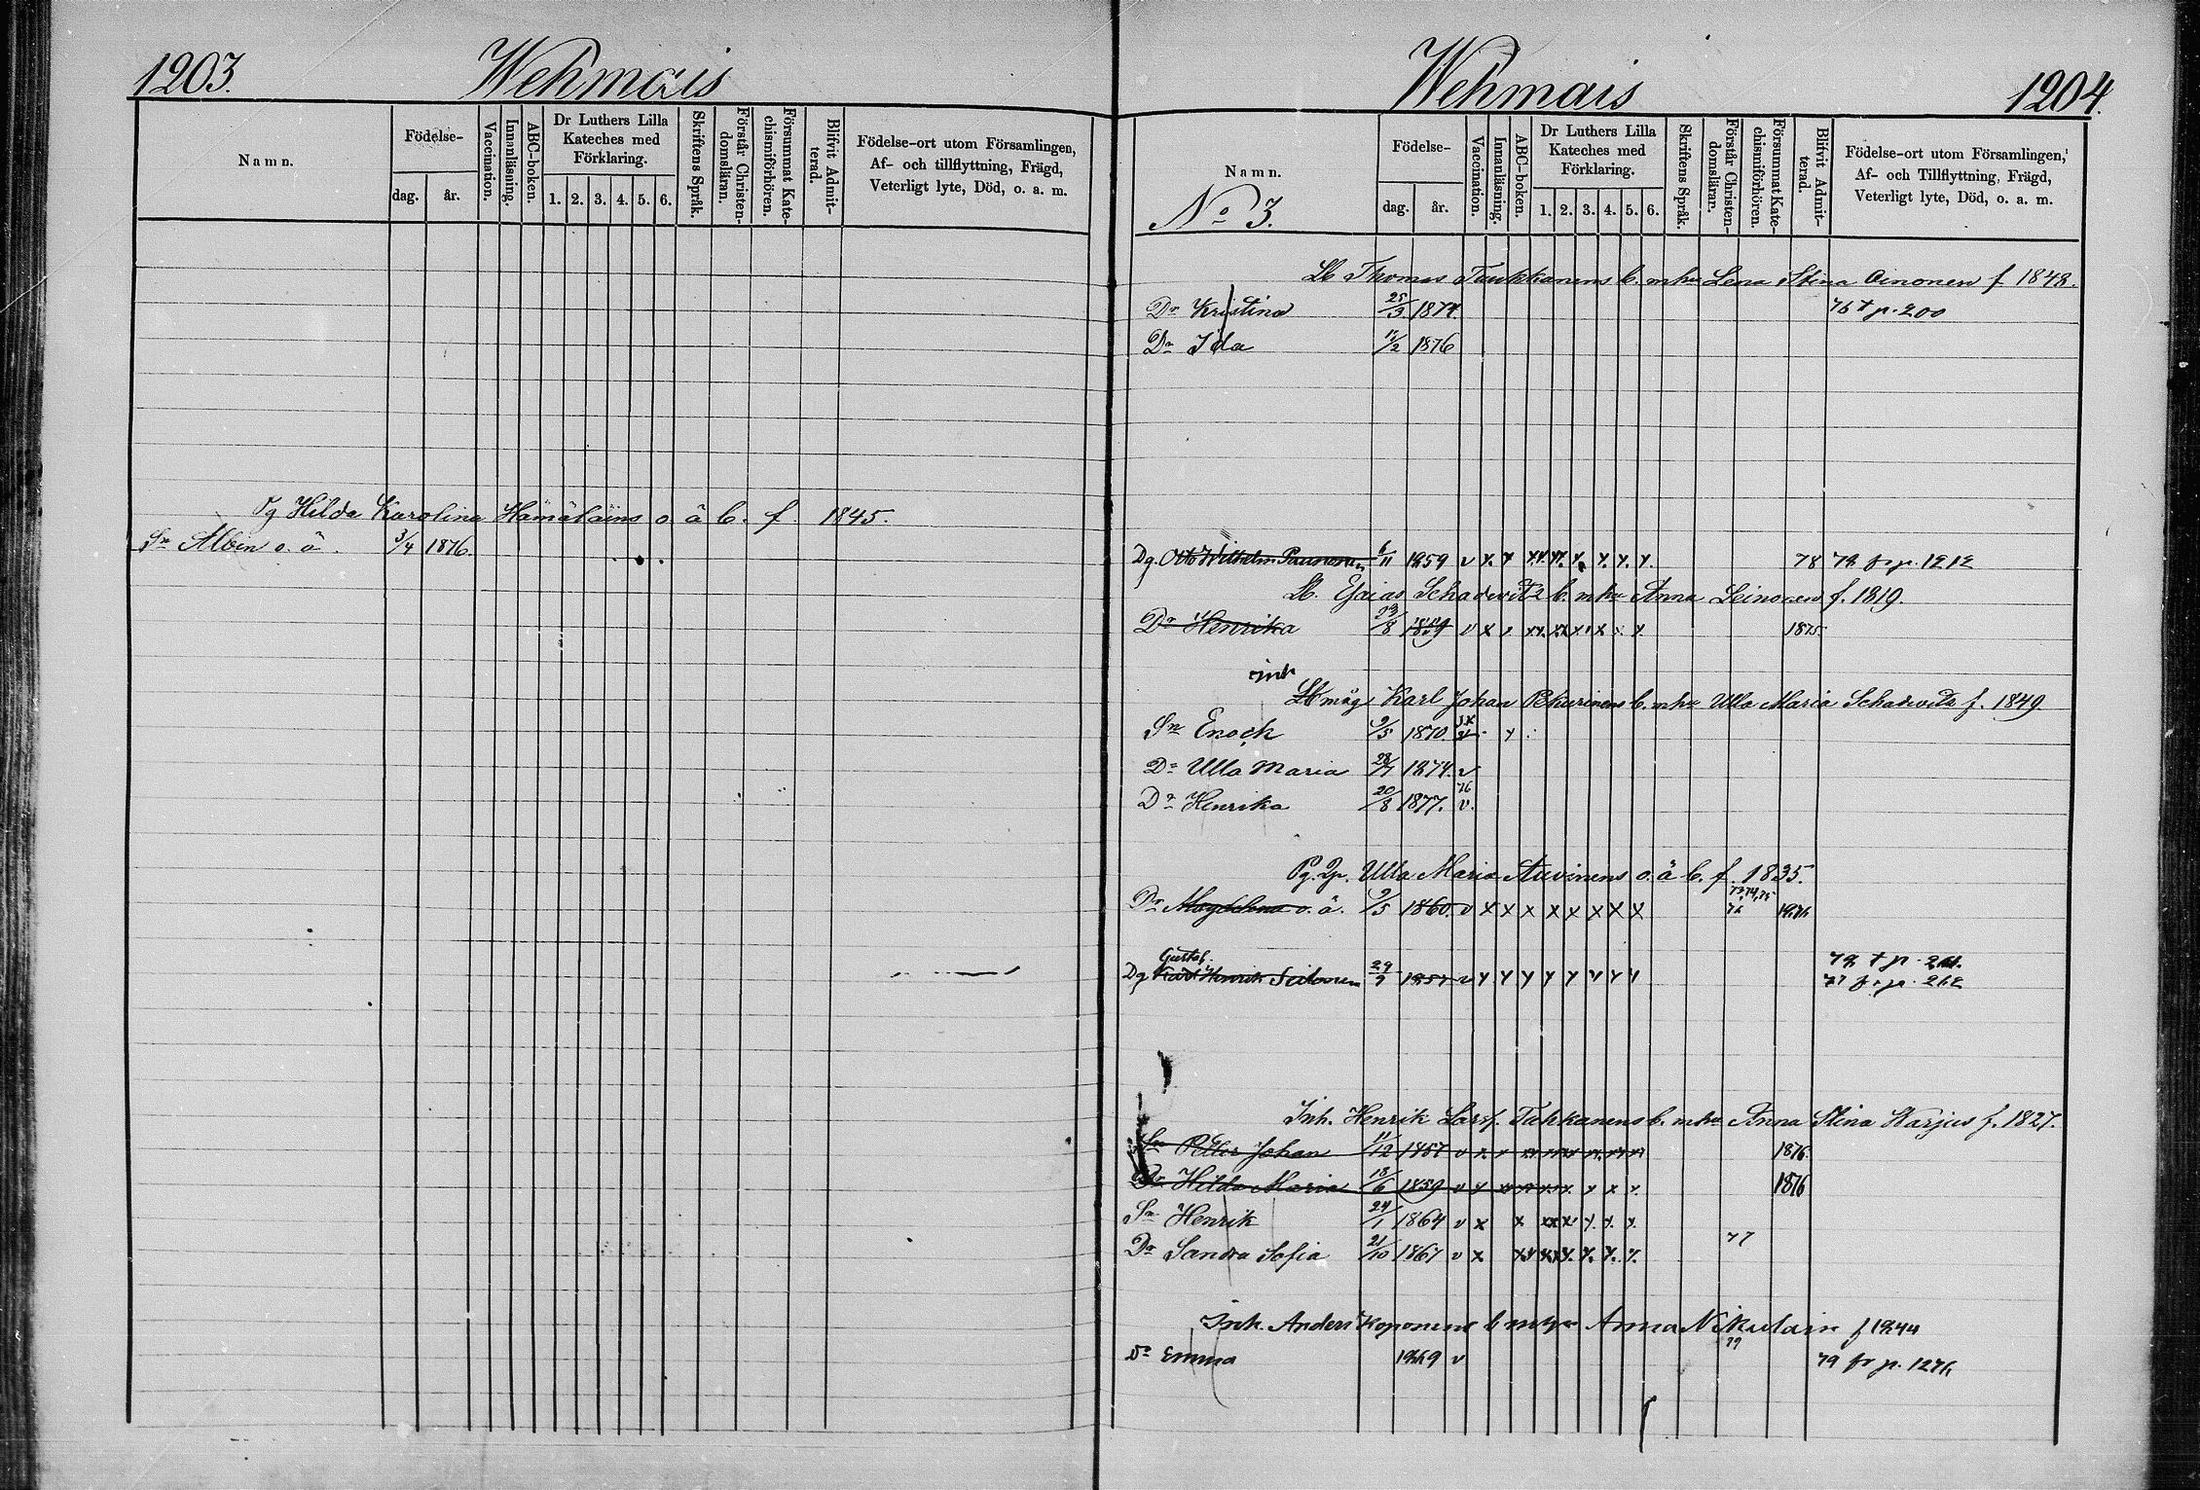 1203.
Wehmais
Namn.
Födelse-
dag.
år.
Vaccination.
Innanläsning.
ABC-boken.
Dr Luthers Lilla
Kateches med
Förklaring.
1. 2. 3. 4. 5. 6.
Skriftens Språk.
Förstår Christen-
domsläran.
Försummat Kate-
chismiförhören.
Blifvit Admit-
terad.
Födelse-ort utom Församlingen,
Af- och tillflyttning, Frägd,
Veterligt lyte, Död, o. a. m.
Pg Hilda Karolina Hämäläins o ä b. f. 1845.
Sn Albin o. ä. 3/4 1876
Wehmais
1204.
Namn.
No 3.
Födelse-
dag.
år.
Vaccination.
Innanläsning.
ABC-boken.
Dr Luthers Lilla
Kateches med
Förklaring.
1. 2. 3. 4. 5. 6.
Skriftens Språk.
Förstår Christen-
domslärar.
Försummat Kate-
chismiförhören.
Blifvit Admit-
terad.
Födelse-ort utom Församlingen,
Af- och Tillflyttning, Frägd,
Veterligt lyte, Död, o. a. m.
Lb Thomas Tuukkanens b. m hu Lena Stina Oinonen f 1848.
Dr Kristina 25/3 1874 76 t p. 200
Dr Ida 1876
Dg. Otto Wilhelm Paunonen 6/11 1859 v x x x x x x x x x 78 78 fr p. 1212
Lb. Esaias Schadewitz b. m hu Anna Leinonen f. 1819.
Dr Henrika 23/8 v x x x x x x x x x x 1875
inh
Lb måg Karl Johan Pekurinens b. m hu Ulla Maria Schadewitz f. 1849.
Sn Enoch 9/5 1870.
Dr Ulla Maria 1874. v
76
Dr Henrika 20/8 1877. v.
Pg. Qp. Ulla Maria Auvinens o. ä b. f. 1835.
73,74,75
Dr Magdalena o. ä. 9/5 1860. v x x x x x x x x 76 1876
Gustaf
Dg Karl Henrik Seilonen 29/9 1857 v x x x x x x x x
78 t p. 261.
77 fr p. 262
Inh. Henrik Larss. Tukkanens b. m hu Anna Stina Harjus f. 1827.
Sn Petter Johan 11/12 1857 1876.
Dr Hilda Maria 18/6 1859 1876
Sn Henrik 24/1 1864 v x x x x x x x x
Dr Sandra Sofia 21/10 1867 v x x x x x x x x x 77
Inh. Anders Koponens b m hu Anna Nikulain f 1844
79
Dr Emma 1869 v 79 fr p. 1276